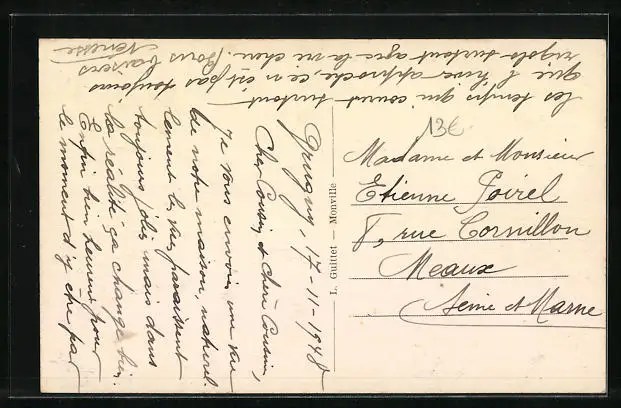 Grugny, 17-11-1948
Cher Cousin et Chère Cousine,
Je vous envoie une vue
de notre maison, naturel-
lement les vues paraissent
toujours jolies mais dans
la réalité ça change bien.
Enfin bien heureux pour
le moment d'y être par
les temps qui courent surtout
que l'hiver approche, ce n'est pas toujours
rigolo surtout avec la vie chère. Bons baisers
L. Guittet — Monville
13€
Madame et Monsieur
Etienne Poirel
8, rue Cornillon
Meaux
Seine et Marne